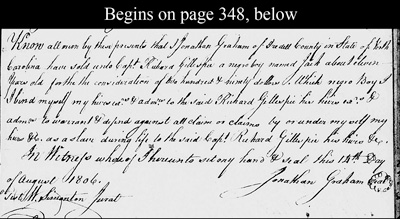 Begins on page 348, below
Know all men by these presents that I Jonathan Graham of Iredell County in State of North
Carolina have sold unto Capt. Richard Gillespie a negro boy named Jack about eleven
years old for the consideration of two hundred & ninety dollars. Which negro Boy I
I bind myself my heirs exrs. & admrs. to the said Richard Gillespie his heirs exrs. &
admrs. to warrant & defend against all claim or claims by or under myself my
heirs &c. as a slave during life to the said Capt. Richard Gillespie his heirs &c.
In Witness whereof I hereunto set my hand & seal this 14th Day
of August 1806. Jonathan Graham seal
Test W. Jurat